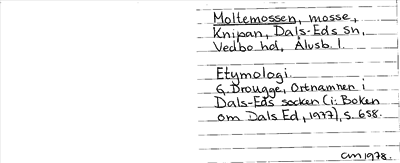 Moltemossen, mosse,
Knipan, Dals-Eds sn,
Vedbo hd, Älvsb. l.
Etymologi
G. Brougge, Ortnamnen i
Dals-Eds socken (i: Boken
om Dals Ed, 1977), s. 658.
CM 1978.